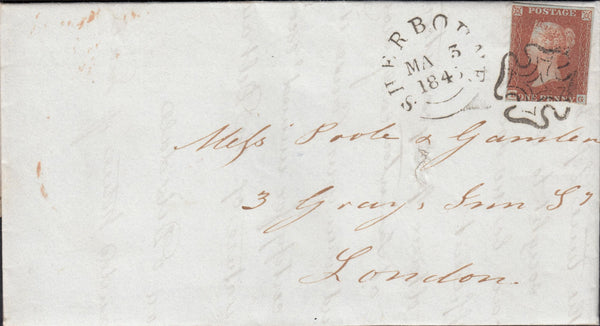 SHERBORNE
MA 3
184
POSTAGE
ONE PENNY
Messs Poole & Gamlen
3 Grays Inn Sq
London.